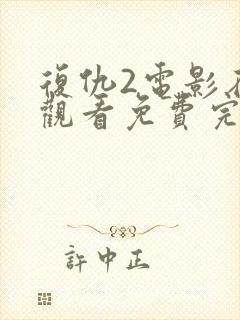 復仇2電影在
觀看免費完
許中正